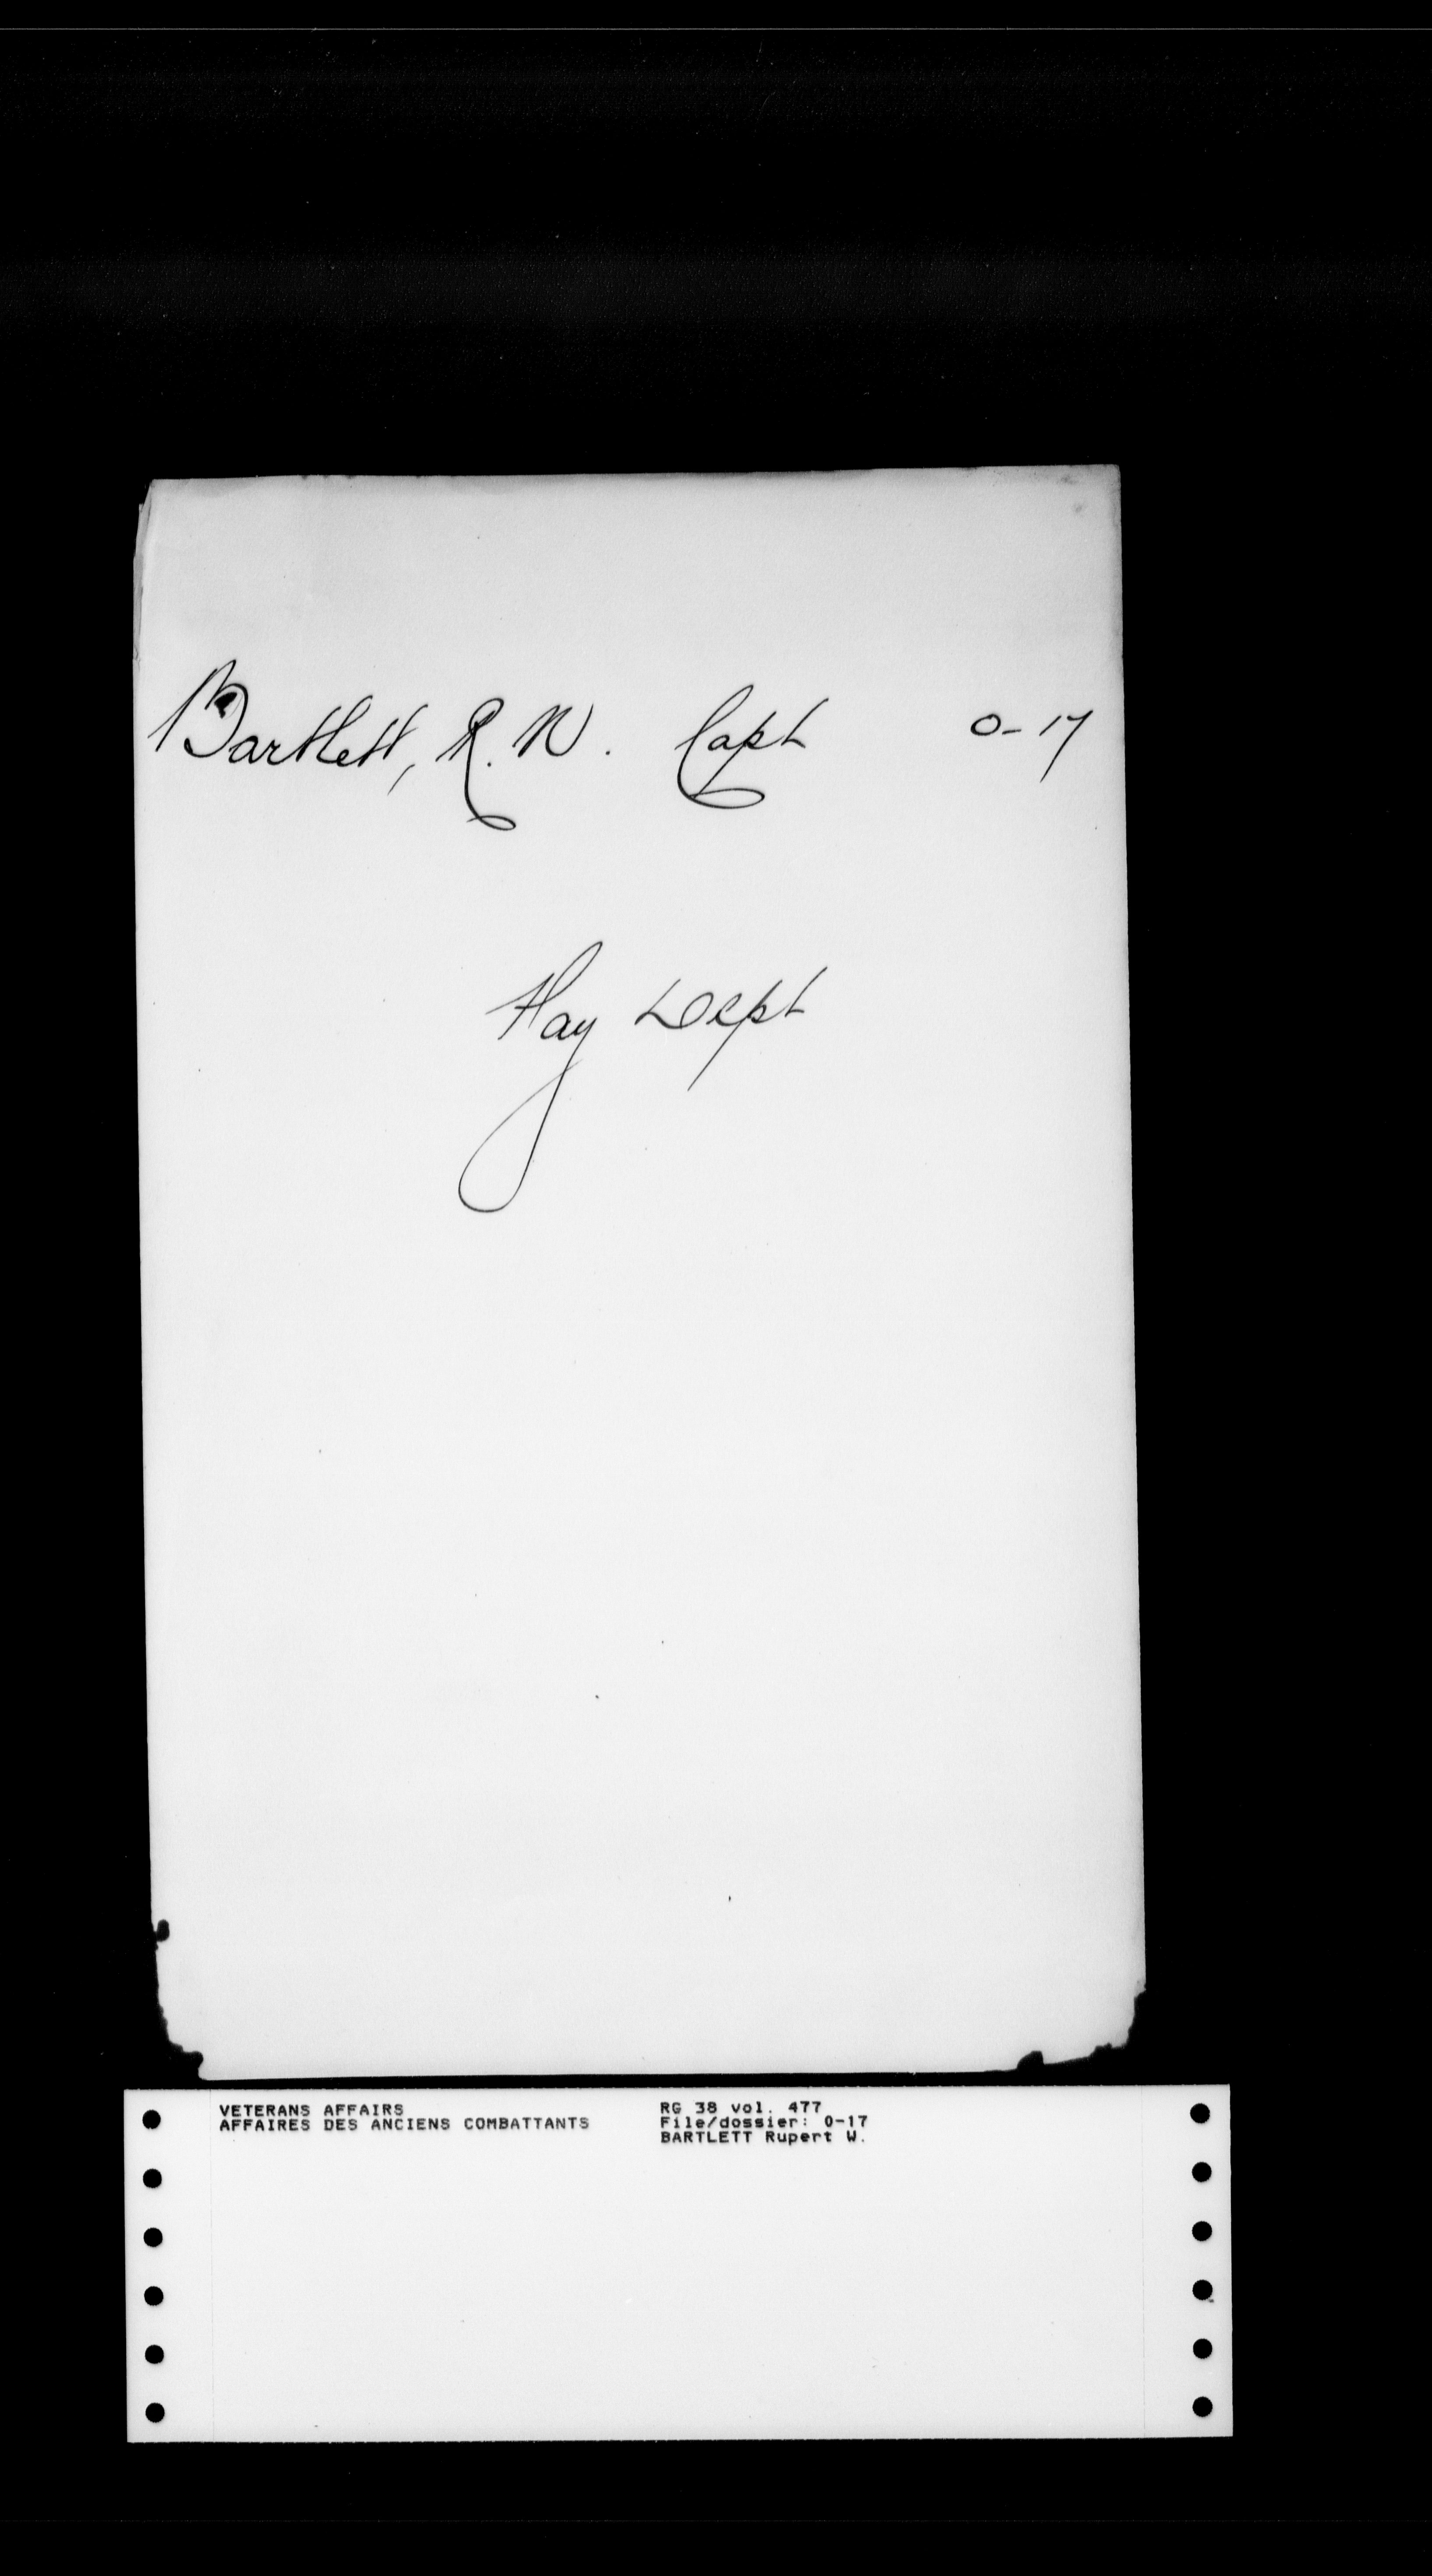 Bartlett, R. W. Capt 0-17
Pay Dept
VETERANS AFFAIRS
AFFAIRES DES ANCIENS COMBATTANTS
RG 38 vol. 477
File/dossier: 0-17
BARTLETT Rupert W.